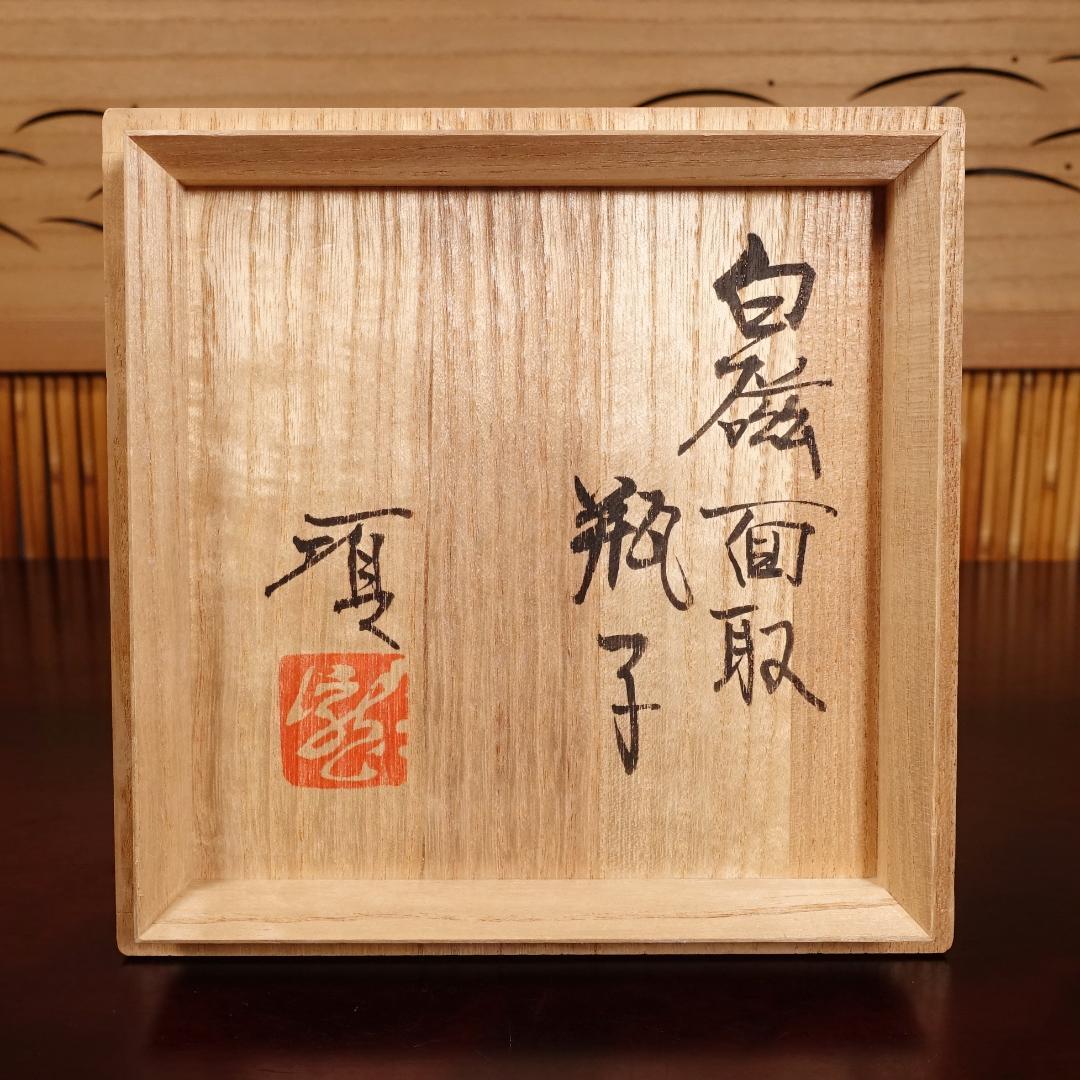 白磁面取
瓶子
項